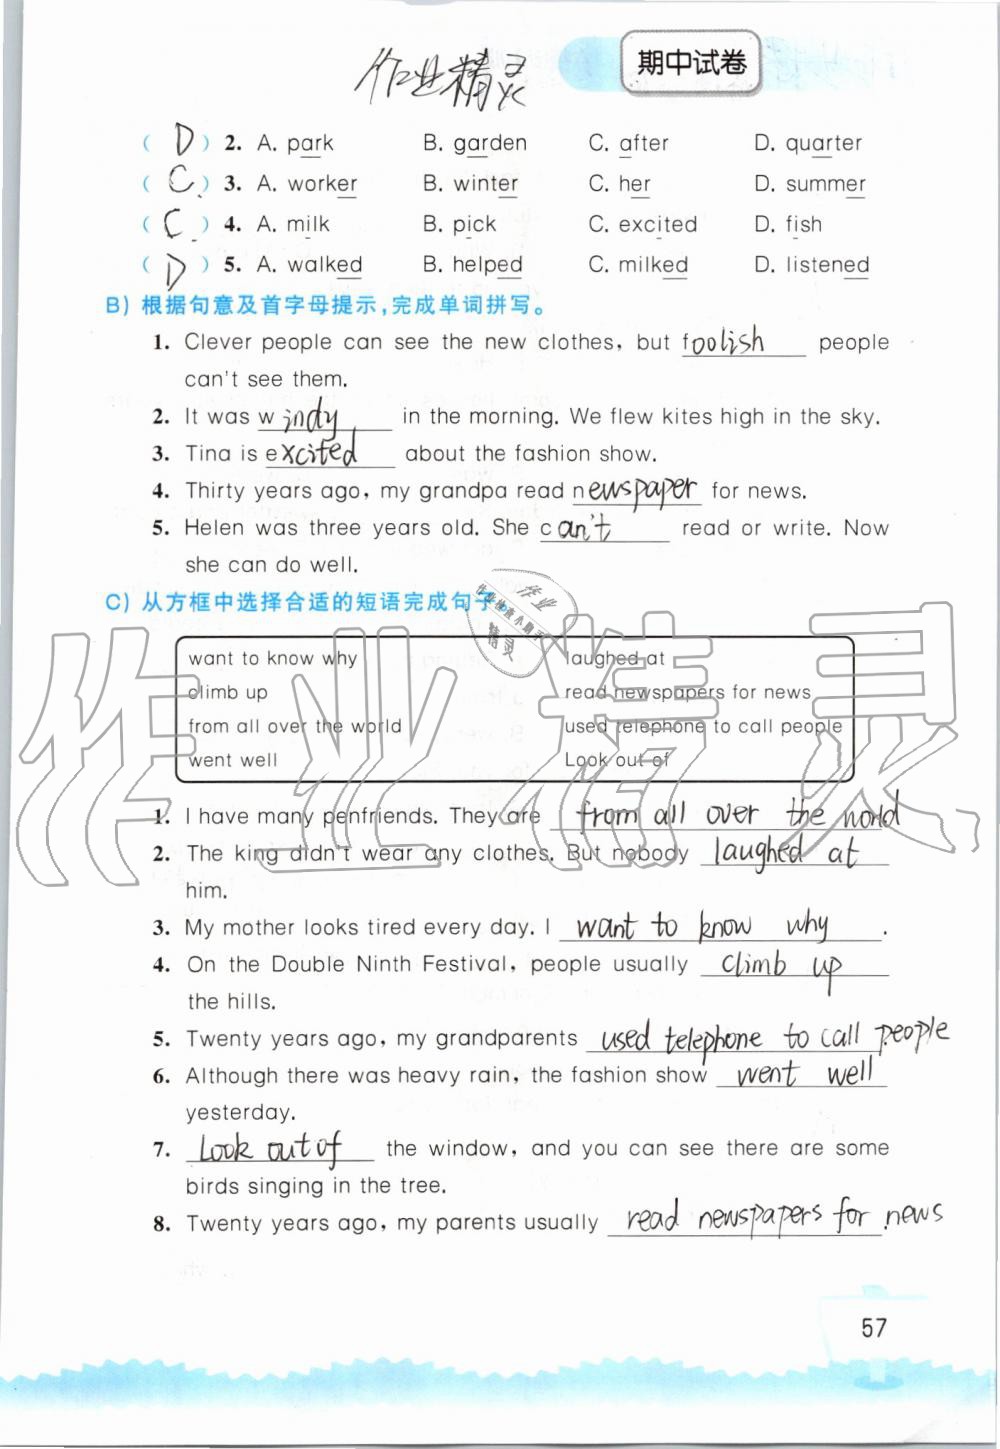 期中试卷
作业精灵
( D ) 2. A. park B. garden C. after D. quarter
( C ) 3. A. worker B. winter C. her D. summer
( C ) 4. A. milk B. pick C. excited D. fish
( D ) 5. A. walked B. helped C. milked D. listened
B) 根据句意及首字母提示,完成单词拼写。
1. Clever people can see the new clothes, but foolish people
can't see them.
2. It was windy in the morning. We flew kites high in the sky.
3. Tina is excited about the fashion show.
4. Thirty years ago, my grandpa read newspaper for news.
5. Helen was three years old. She can't read or write. Now
she can do well.
C) 从方框中选择合适的短语完成句子。
want to know why laughed at
climb up read newspapers for news
from all over the world used telephone to call people
went well Look out of
1. I have many penfriends. They are from all over the world
2. The king didn't wear any clothes. But nobody laughed at
him.
3. My mother looks tired every day. I want to know why.
4. On the Double Ninth Festival, people usually climb up
the hills.
5. Twenty years ago, my grandparents used telephone to call people.
6. Although there was heavy rain, the fashion show went well
yesterday.
7. Look out of the window, and you can see there are some
birds singing in the tree.
8. Twenty years ago, my parents usually read newspapers for news.
57
作业精灵